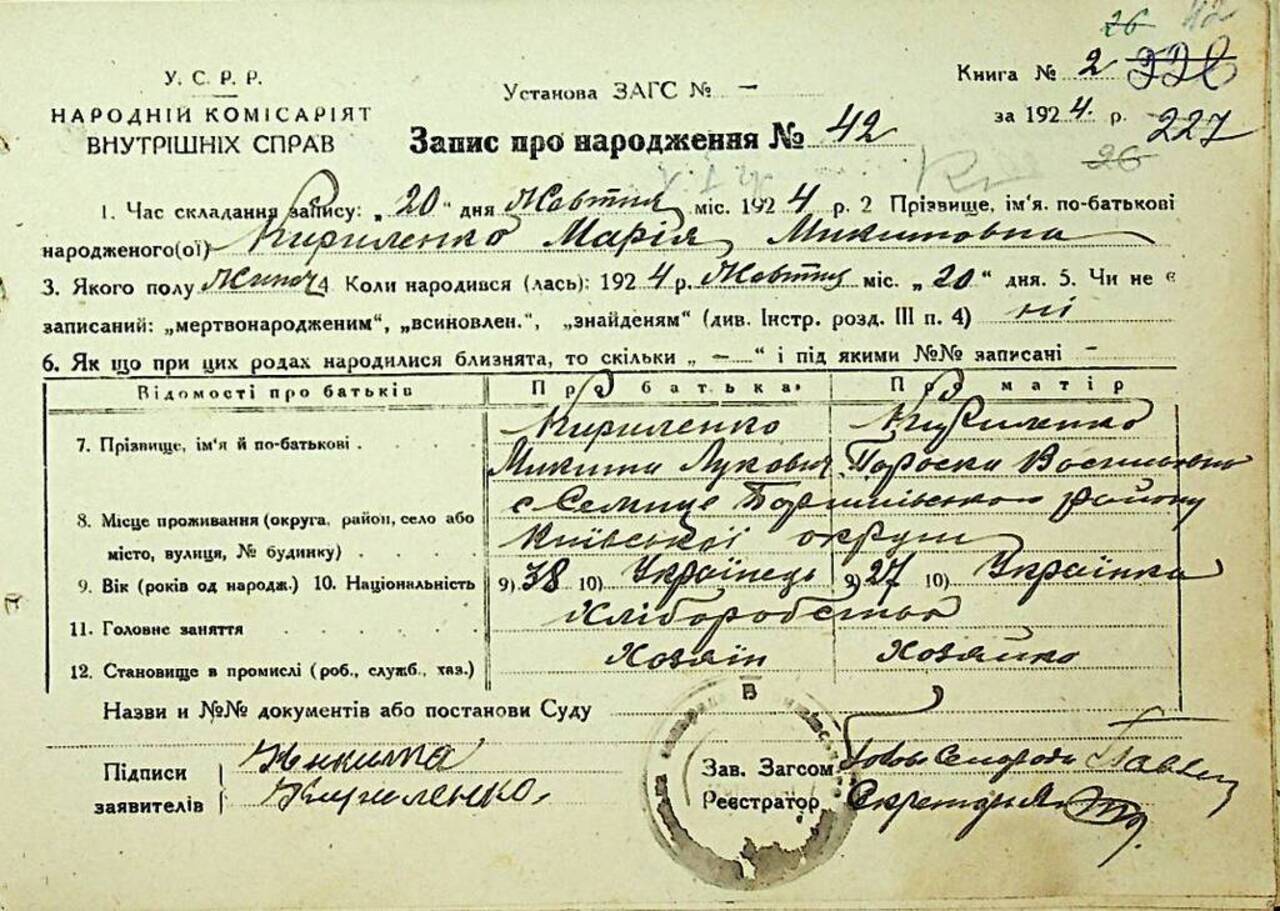 26 42
У. С. Р. Р.
НАРОДНІЙ КОМІСАРІЯТ
ВНУТРІШНІХ СПРАВ
Установа ЗАГС № —
Книга № 2
за 1924 р. 227
26
Запис про народження № 42
1. Час складання запису: „20" дня Жовтня міс. 1924 р. 2 Прізвище, ім'я. по-батькові
народженого(ої) Кириленко Марія Микитовна
3. Якого полу Жіноч 4 Коли народився (лась): 1924 р. Жовтня міс. „20" дня. 5. Чи не є
записаний: „мертвонародженим", „всиновлен.", „знайденям" (див. Інстр. розд. III п. 4) ні
6. Як що при цих родах народилися близнята, то скільки „—" і під якими №№ записані –
Відомості про батьків Про батька Про матір
7. Прізвище, ім'я й по-батькові . Кириленко Кириленко
Микита Лукович Пороска Васильовна
8. Місце проживання (округа, район, село або с Семице Бориспівського району
місто, вулиця, № будинку) Київської округи
9. Вік (років од народж.) 10. Національність 9) 38 10) Українець 9) 27 10) Українка
11. Головне заняття Хліборобство
12. Становище в промислі (роб., служб., хаз.) Хозяїн Хозяйко
Назви и №№ документів або постанови Суду
Підписи
заявителів
Никита
Кириленко
Зав. Загсом Голова Сельради
Реєстратор Секретарь